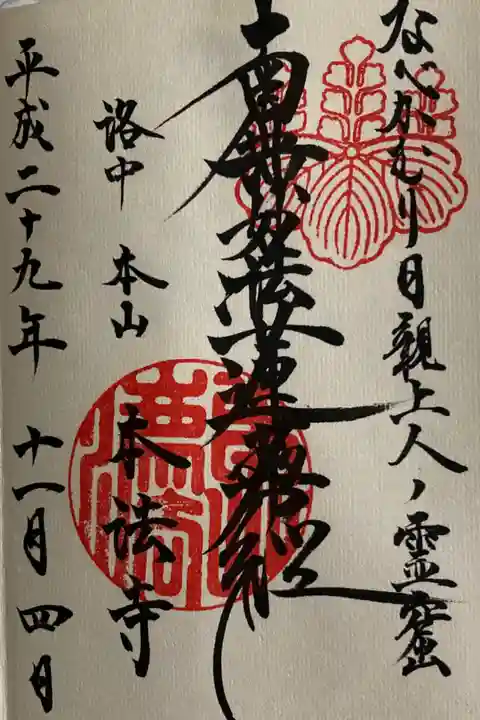 なべかむり日親上人ノ霊窟
南無妙法蓮華経
洛中 本山 本法寺
平成二十九年 十一月四日